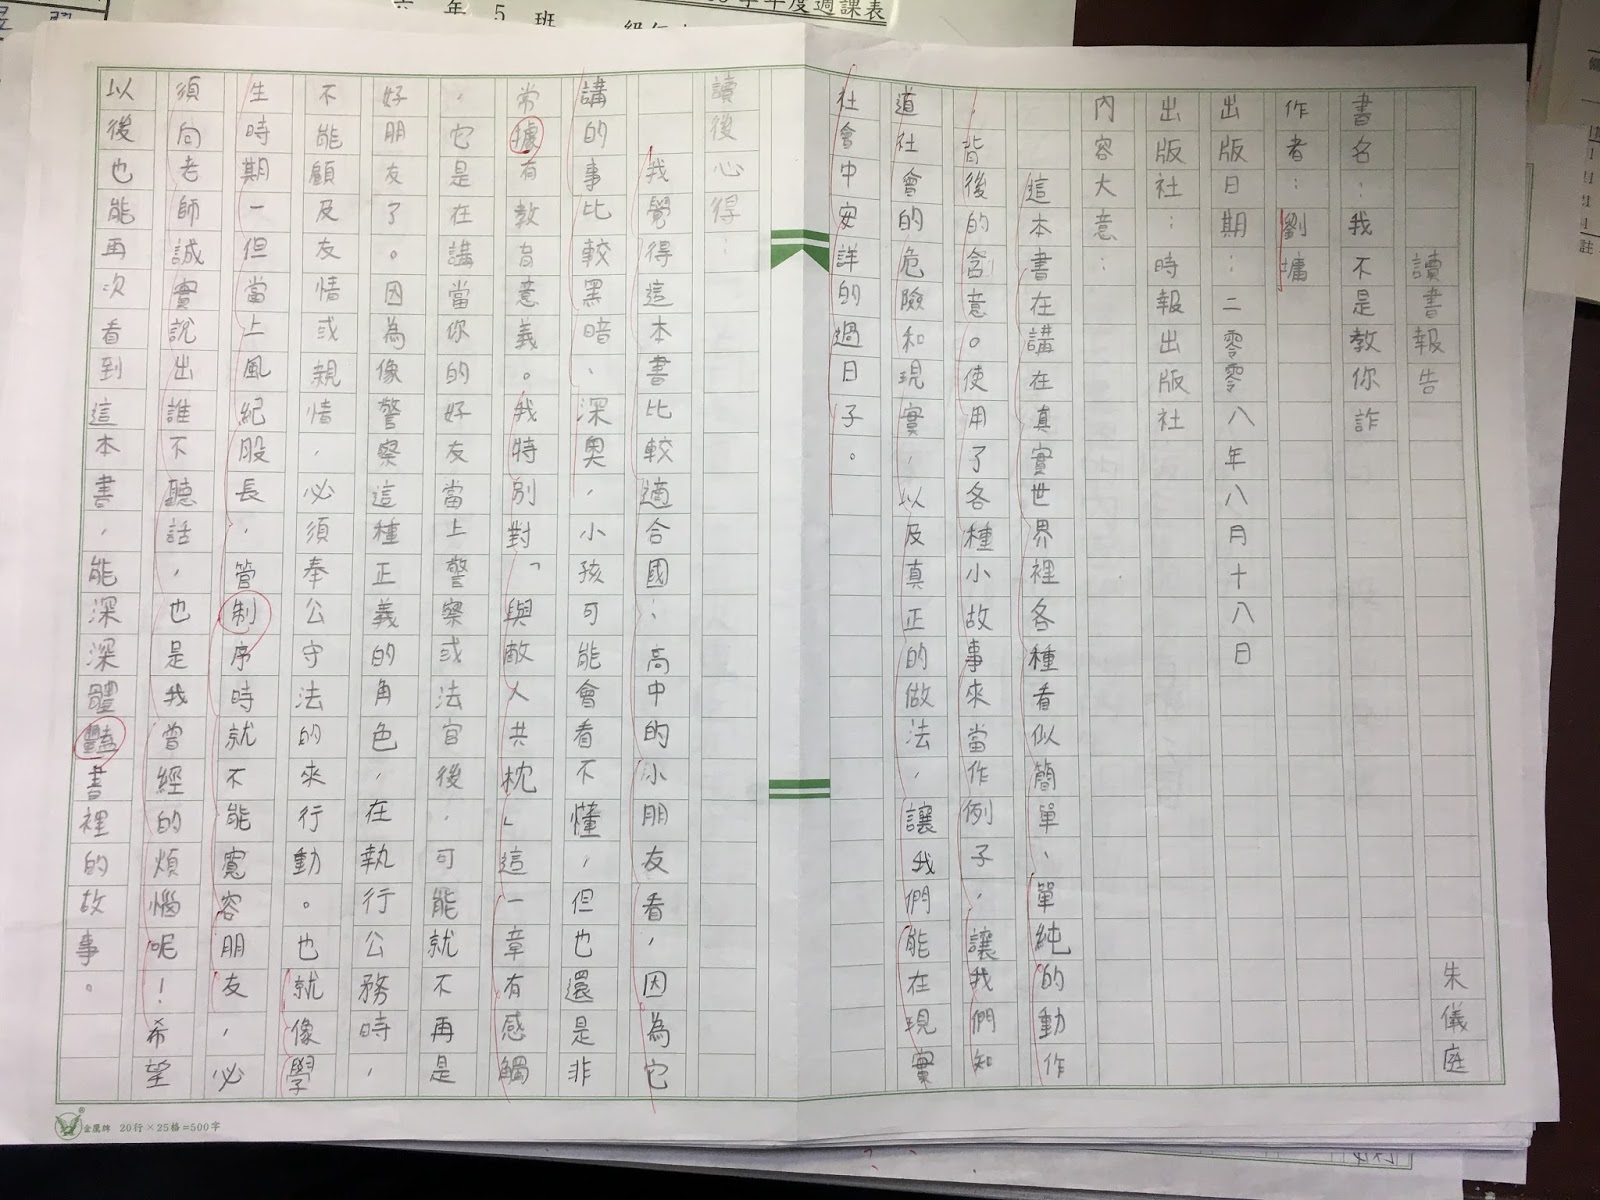 年度週課表
六年5班
讀書報告
朱儀庭
書名：我不是教你詐
作者：劉墉
出版日期：二零零八年八月十八日
出版社：時報出版社
內容大意：
這本書在講在真實世界裡各種看似簡單、單純的動作
，背後的含意。使用了各種小故事來當作例子，讓我們知
道社會的危險和現實，以及真正的做法，讓我們能在現實
社會中安詳的過日子。
讀後心得：
我覺得這本書比較適合國、高中的小朋友看，因為它
講的事比較黑暗、深奧，小孩可能會看不懂，但也還是非
常據有教育意義。我特別對「與敵人共枕」這一章有感觸
，它是在講當你的好友當上警察或法官後，可能就不再是
好朋友了。因為像警察這種正義的角色，在執行公務時，
不能顧及友情或親情，必須奉公守法的來行動。也就像學
生時期一但當上風紀股長，管制序時就不能寬容朋友，必
須向老師誠實說出誰不聽話，也是我曾經的煩惱呢！希望
以後也能再次看到這本書，能深深體豔書裡的故事。
金鷹牌 20行×25格=500字